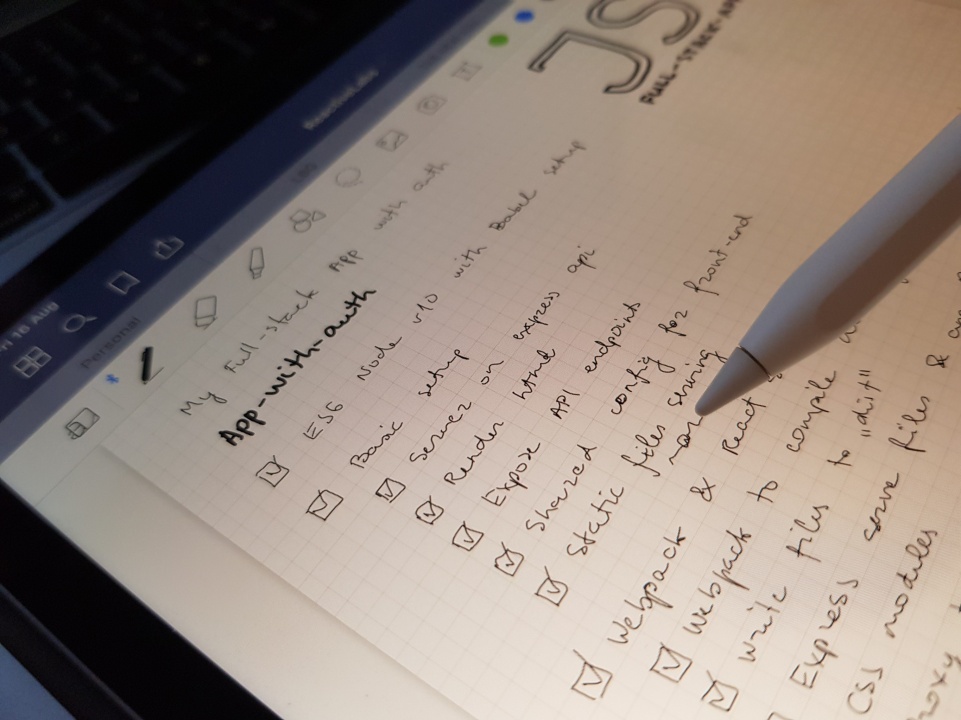 Personal
JS
FULL-STACK-AP
My Full-stack App with auth
App-with-auth
ES6 Node v10 with Babel setup
Basic setup
Server on express api
Render html
Expose API endpoints
Shared config for front-end
Static files serving
Webpack & React
Webpack to compile
write files to "dist"
Express serve files &
CSS modules